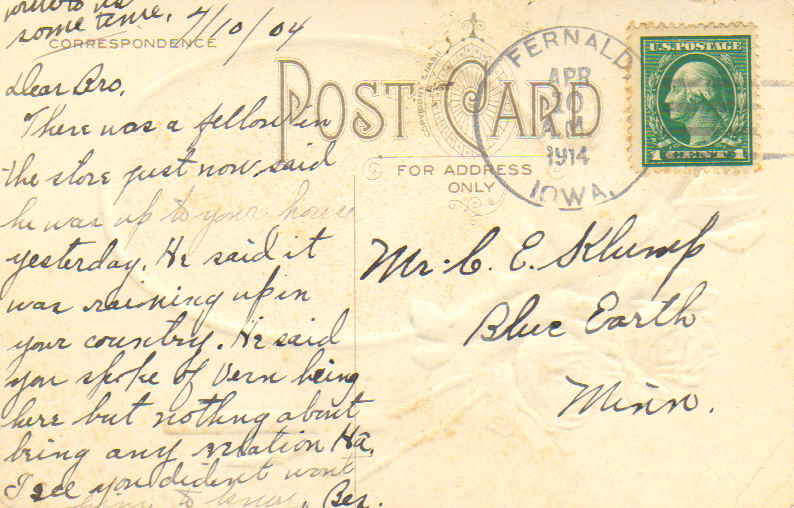 write to us
some time. 4/10/04
CORRESPONDENCE
POST CARD
FOR ADDRESS
ONLY
FERNALD,
APR
10
A.M.
1914
IOWA.
U.S. POSTAGE
1 CENT 1
Dear Bro,
There was a fellow in
the store just now said
he was up to your house
yesterday. He said it
was raining up in
your country. He said
you spoke of Vern being
here but nothing about
being any relation Ha.
I see you dident want
to know. Ber.
Mr. C. E. Klump
Blue Earth
Minn.